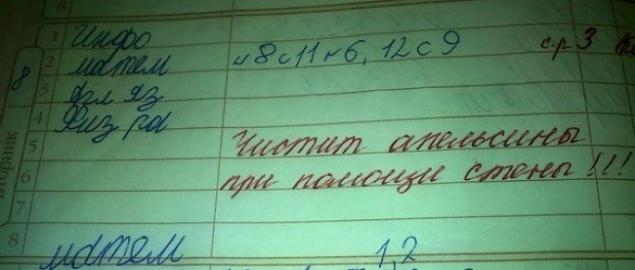 8
1 Инфо
2 матем и 8 с 11 н 6, 12 с 9 ср 3
3 Агл яз
4 Физ ра
5 Чистит апельсины
6 при помощи стены !!!
7
8
8
вторник
матем 1,2